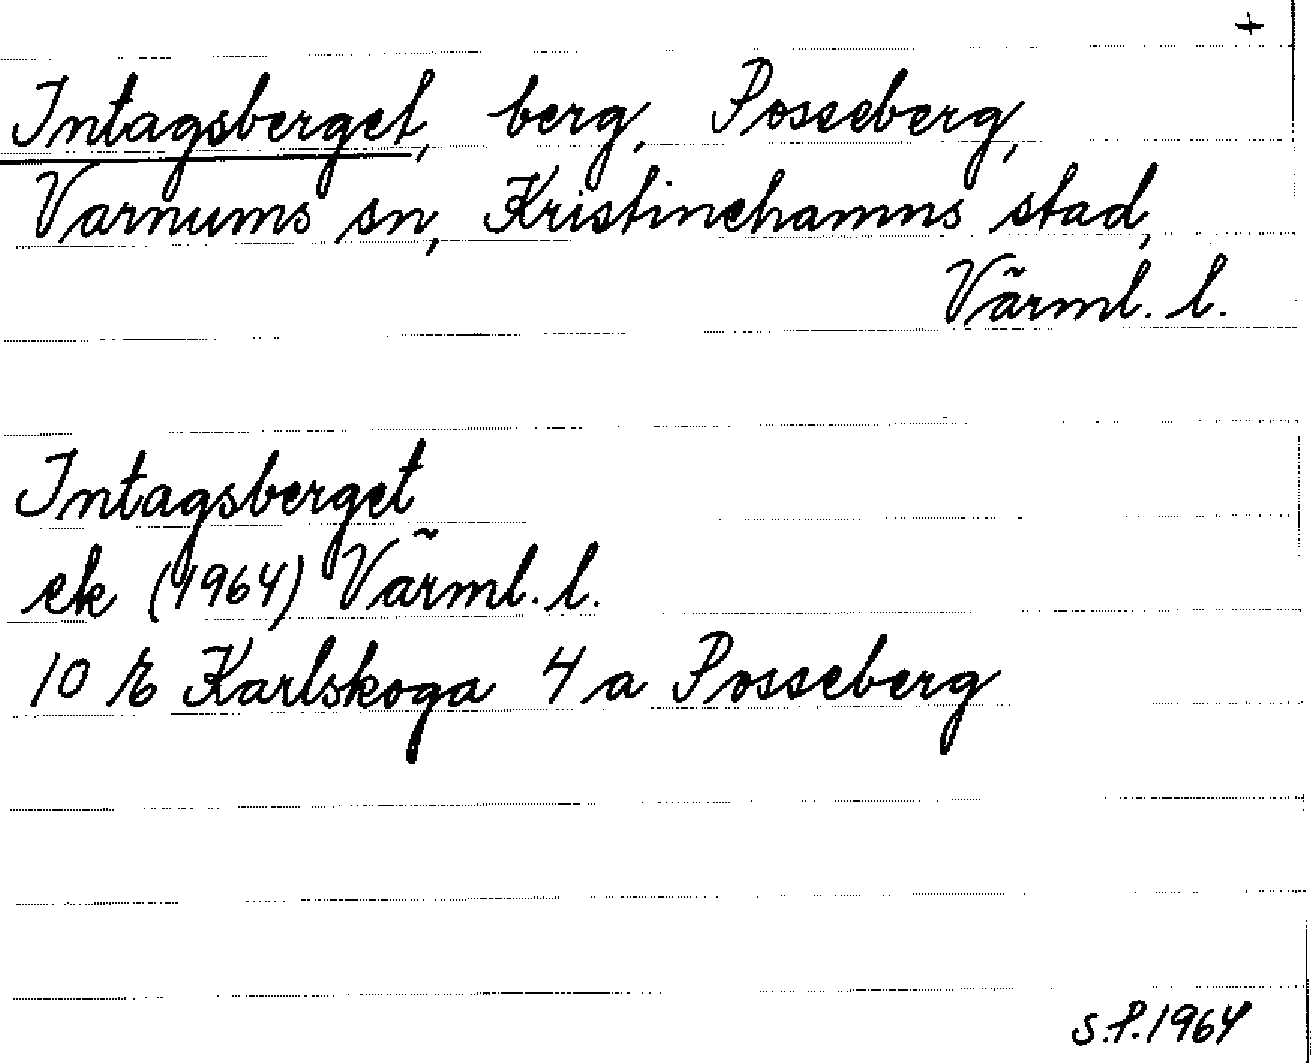 +
Intagsberget, berg, Posseberg,
Varnums sn, Kristinehamns stad,
Värml. l.
Intagsberget
ek (1964) Värml. l.
10 E Karlskoga 4 a Posseberg
S.P. 1964